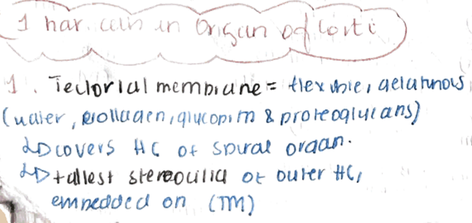 1 hair cells in Organ of Corti
1. Tectorial membrane = flexible, gelatinous
(water, collagen, glucoprtn & proteoglycans)
↳ covers HC of spiral organ.
↳ tallest stereocilia of outer HC,
embedded on (TM)